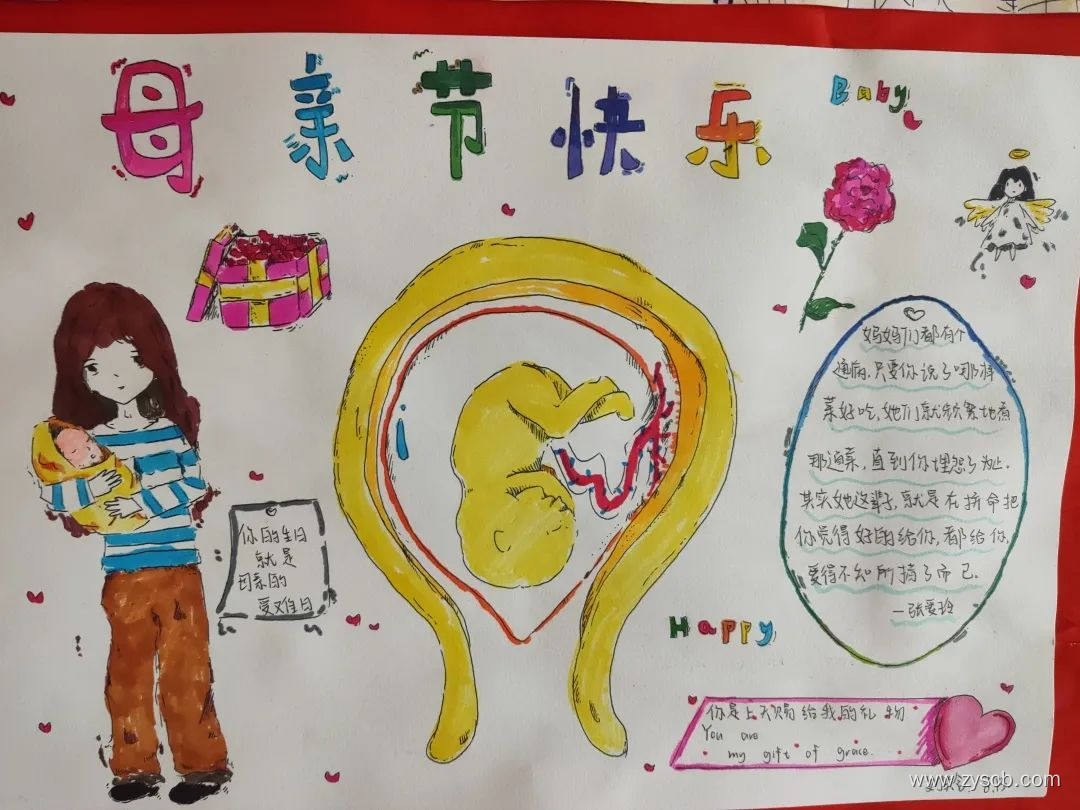 母亲节快乐
Baby
妈妈们都有个
通病,只要你说了哪样
菜好吃,她们就频繁地煮
那道菜,直到你埋怨了为止.
其实她这辈子,就是在拼命把
你觉得好的给你,都给你,
爱得不知所措了而已.
—张爱玲
你的生日
就是
母亲的
受难日
Happy
你是上天赐给我的礼物
You are
my gift of grace.
www.zyscb.com